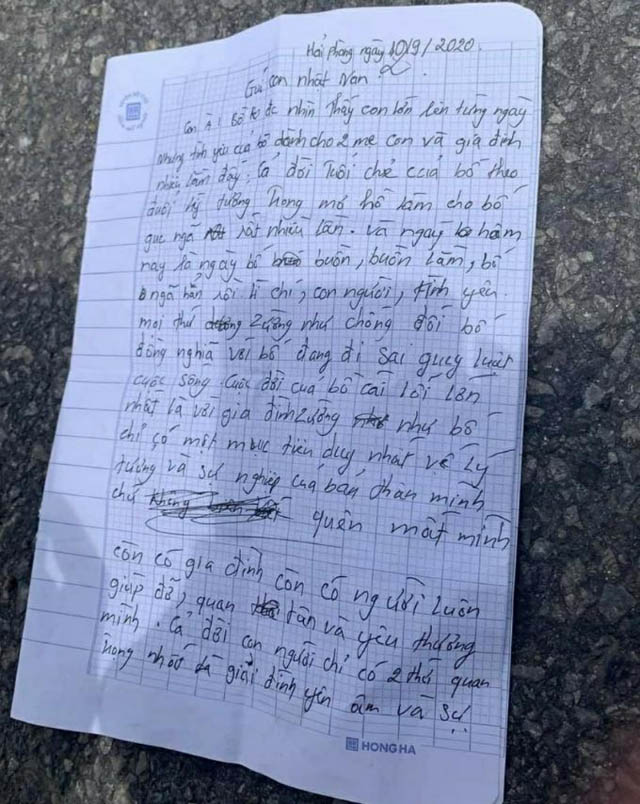 Hải phòng ngày 10/9/2020.
Gửi con nhật Nan
Con À! Bố ko đc nhìn thấy con lớn lên từng ngày
Nhưng tình yêu của bố dành cho 2 mẹ con và gia đình
nhiều lắm đấy. Cả đời tuổi chẻ của bố theo
đuổi lý tưởng trong mơ hồ làm cho bố
gục ngã rất nhiều lần. và ngày hôm
nay là ngày bố buồn, buồn lắm, bố
ngã hẳn rồi lí chí, con người, tình yêu.
mọi thứ zường như chống đối bố
đồng nghĩa với bố đang đi sai quy luật
cuộc sống. Cuộc đời của bố cái lỗi lớn
nhất là với gia đình zường như bố
chỉ có một mục tiêu duy nhất về lý
tưởng và sự nghiệp của bản thân mình
chứ quên mất mình
còn có gia đình còn có người luôn
giúp đỡ, quan tân và yêu thương
mình. Cả đời con người chỉ có 2 thứ quan
trọng nhất là giải đình yên ấm và sự
HONG HA